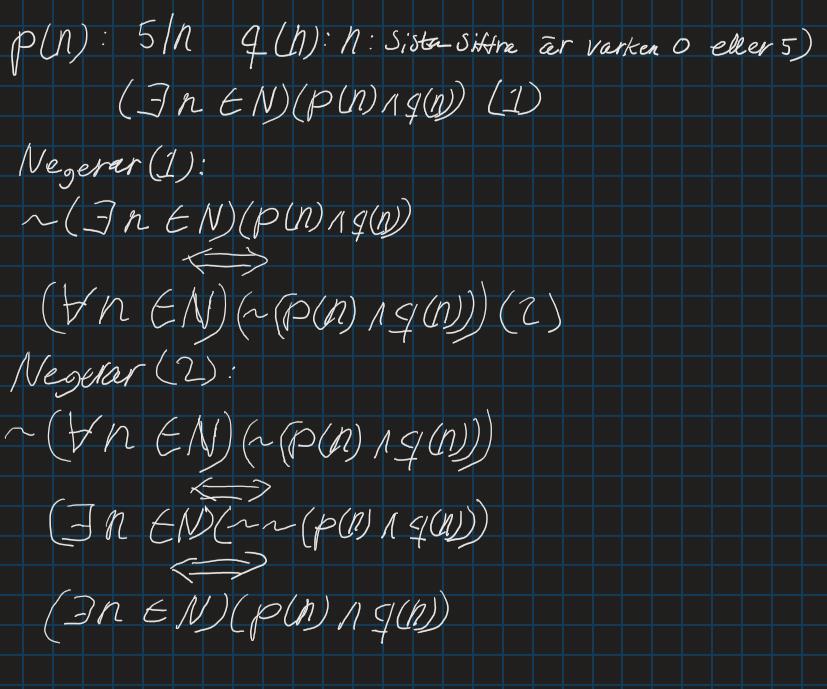 p(n): 5/n q(n): n: sista siffra är varken 0 eller 5)
(∃n ∈ N)(p(n) ∧ q(n)) (1)
Negerar (1):
~(∃n ∈ N)(p(n) ∧ q(n))
⟺
(∀n ∈ N)(~(p(n) ∧ q(n))) (2)
Negerar (2):
~(∀n ∈ N)(~(p(n) ∧ q(n)))
⟺
(∃n ∈ N)(~~(p(n) ∧ q(n)))
⟺
(∃n ∈ N)(p(n) ∧ q(n))